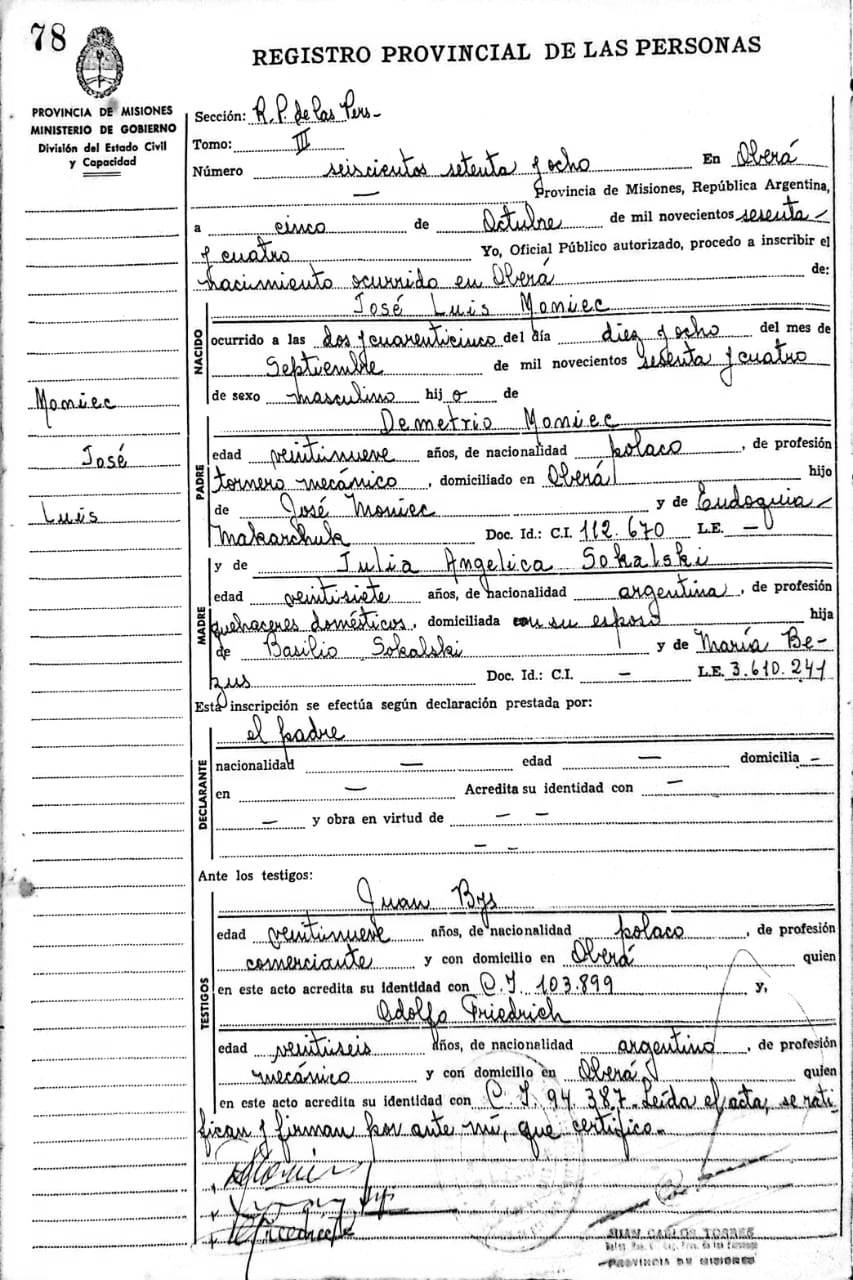 78
REGISTRO PROVINCIAL DE LAS PERSONAS
PROVINCIA DE MISIONES
MINISTERIO DE GOBIERNO
División del Estado Civil
y Capacidad
Moniec
José
Luis
Sección: R.P. de las Pers-
Tomo: III
Número seiscientos setenta y ocho En Oberá
— Provincia de Misiones, República Argentina,
a cinco de Octubre de mil novecientos sesenta
y cuatro Yo, Oficial Público autorizado, procedo a inscribir el
nacimiento ocurrido en Oberá de:
NACIDO
José Luis Moniec
ocurrido a las dos y cuarenticinco del día diez y ocho del mes de
Septiembre de mil novecientos sesenta y cuatro
de sexo masculino hijo de
PADRE
Demetrio Moniec
edad veintinueve años, de nacionalidad polaco, de profesión
tornero mecánico, domiciliado en Oberá hijo
de José Moniec y de Eudoquia
Makarchuk Doc. Id.: C.I. 112.670 L.E. —
MADRE
y de Julia Angelica Sokalski
edad veintisiete años, de nacionalidad argentina, de profesión
quehaceres domésticos, domiciliada con su esposo hija
de Basilio Sokalski y de María Be-
zus Doc. Id.: C.I. — L.E. 3.610.241
Esta inscripción se efectúa según declaración prestada por:
DECLARANTE
el padre
nacionalidad — edad — domicilia —
en — Acredita su identidad con —
— y obra en virtud de — —
— —
Ante los testigos:
TESTIGOS
Juan Bys
edad veintinueve años, de nacionalidad polaco, de profesión
comerciante y con domicilio en Oberá quien
en este acto acredita su identidad con C.I. 103.899 y,
Adolfo Friedrich
edad veintiseis años, de nacionalidad argentino, de profesión
mecánico y con domicilio en Oberá quien
en este acto acredita su identidad con C.I. 94.387. Leída el acta, se rati
fican y firman por ante mí, que certifico.-
JUAN CARLOS TORRES
PROVINCIA DE MISIONES